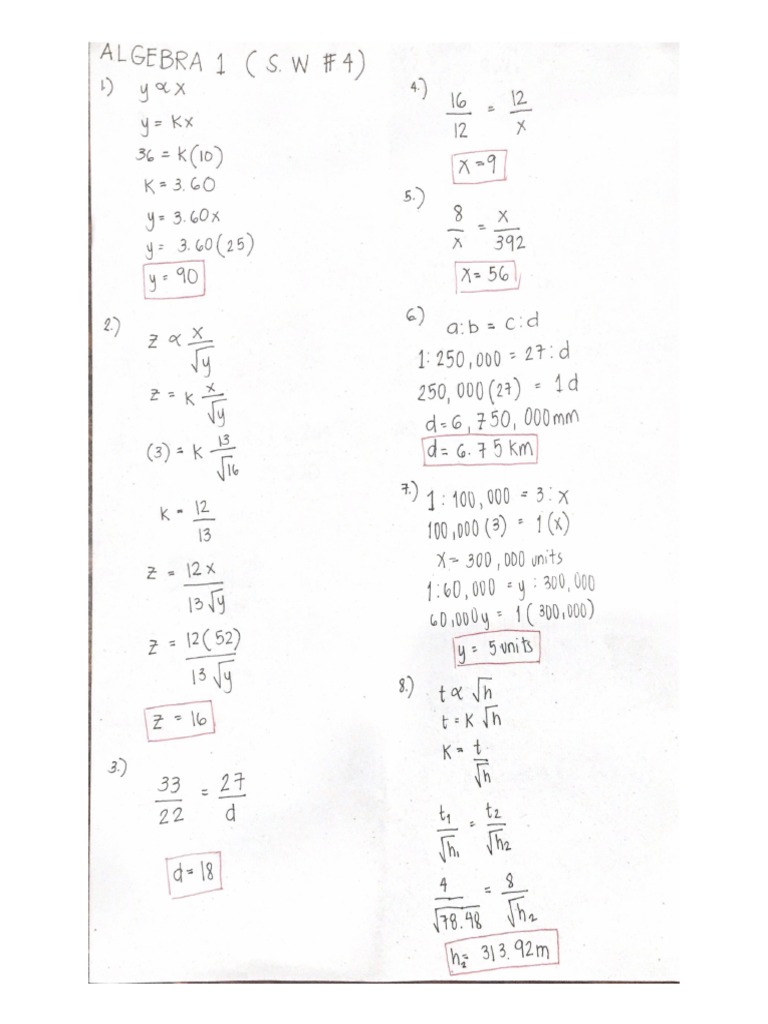 ALGEBRA 1 ( S. W #4)
1.) y ∝ x
y = Kx
36 = K(10)
K = 3.60
y = 3.60x
y = 3.60(25)
y = 90
2.) z ∝ x/√y
z = K x/√y
(3) = K 13/√16
K = 12/13
z = 12x/13√y
z = 12(52)/13√y
z = 16
3.) 33/22 = 27/d
d = 18
4.) 16/12 = 12/x
x = 9
5.) 8/x = x/392
x = 56
6.) a:b = c:d
1:250,000 = 27:d
250,000(27) = 1d
d = 6,750,000mm
d = 6.75 km
7.) 1:100,000 = 3:x
100,000(3) = 1(x)
x = 300,000 units
1:60,000 = y:300,000
60,000y = 1(300,000)
y = 5 units
8.) t ∝ √h
t = K√h
K = t/√h
t₁/√h₁ = t₂/√h₂
4/√78.48 = 8/√h₂
h₂ = 313.92m